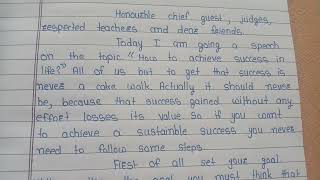 Honourable chief guest, judges,
respected teachers and dear friends.
Today I am going a speech
on the topic "How to achieve success in
life?" All of us but to get that success is
never a cake walk. Actually it should never
be, because that success gained without any
effort losses its value so if you want
to achieve a sustainble success you never
need to follow some steps.
First of all set your goal.
the goal you must think that